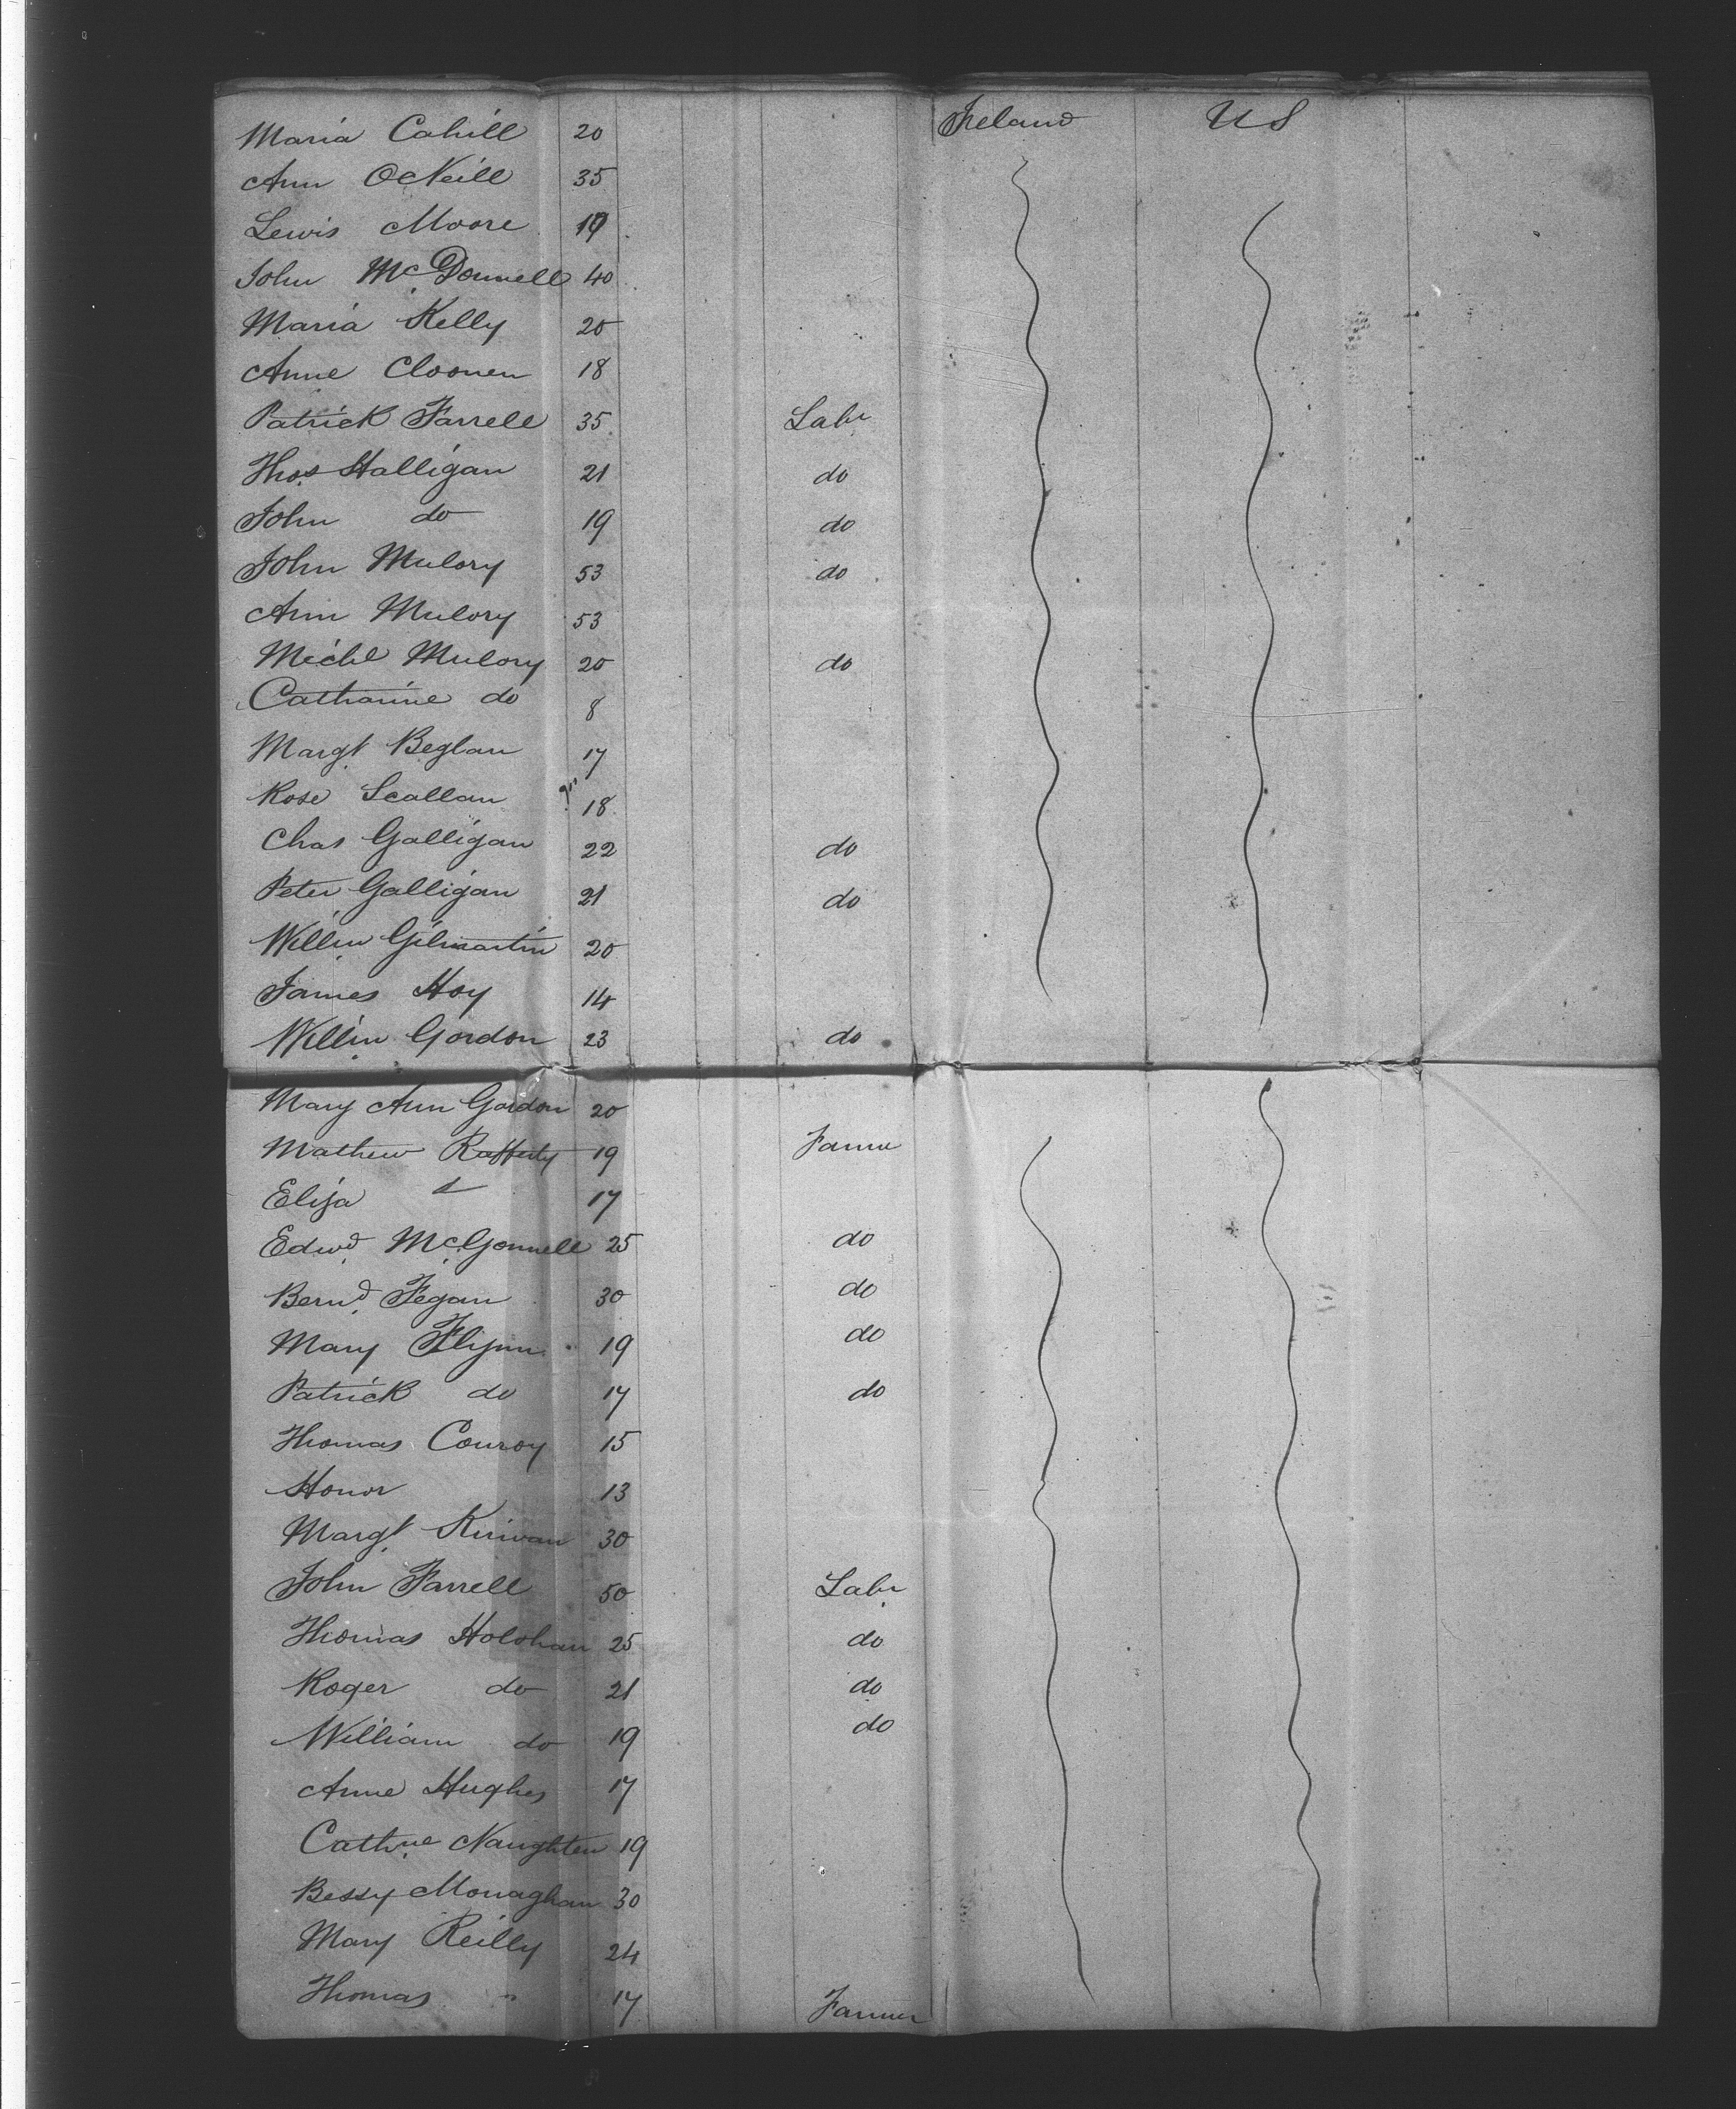 Maria Cahill 20 Ireland US
Ann O'Neill 35
Lewis Moore 19
John McDonnell 40
Maria Kelly 20
Anne Cloonen 18
Patrick Farrell 35 Labr
Thos Halligan 21 do
John do 19 do
John Mulory 53 do
Ann Mulory 53
Michl Mulory 20 do
Catharine do 8
Margt Beglan 17
Rose Scallan 18
Chas Galligan 22 do
Peter Galligan 21 do
Willm Gilmartin 20
James Hoy 14
Willm Gordon 23 do
Mary Ann Gordon 20
Mathew Rafferty 19 Farmer
Eliza 17
Edwd McGonnell 25 do
Bernd Fegan 30 do
Mary Flynn 19 do
Patrick do 17 do
Thomas Conroy 15
Honor 13
Margt Kirivan 30
John Farrell 50 Labr
Thomas Holohan 25 do
Roger do 21 do
William do 19 do
Anne Hughes 17
Cathne Naughten 19
Bessy Monaghan 30
Mary Reilly 24
Thomas " 17 Farmer